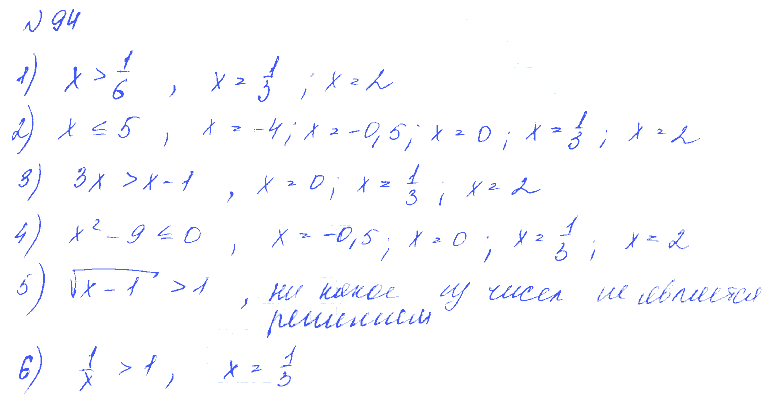 № 94
1) x > 1/6 , x = 1/3 ; x = 2
2) x ≤ 5 , x = -4; x = -0,5; x = 0; x = 1/3; x = 2
3) 3x > x - 1 , x = 0; x = 1/3; x = 2
4) x² - 9 ≤ 0 , x = -0,5; x = 0; x = 1/3; x = 2
5) √(x - 1) > 1 , ни какое из чисел не является
решением
6) 1/x > 1, x = 1/3